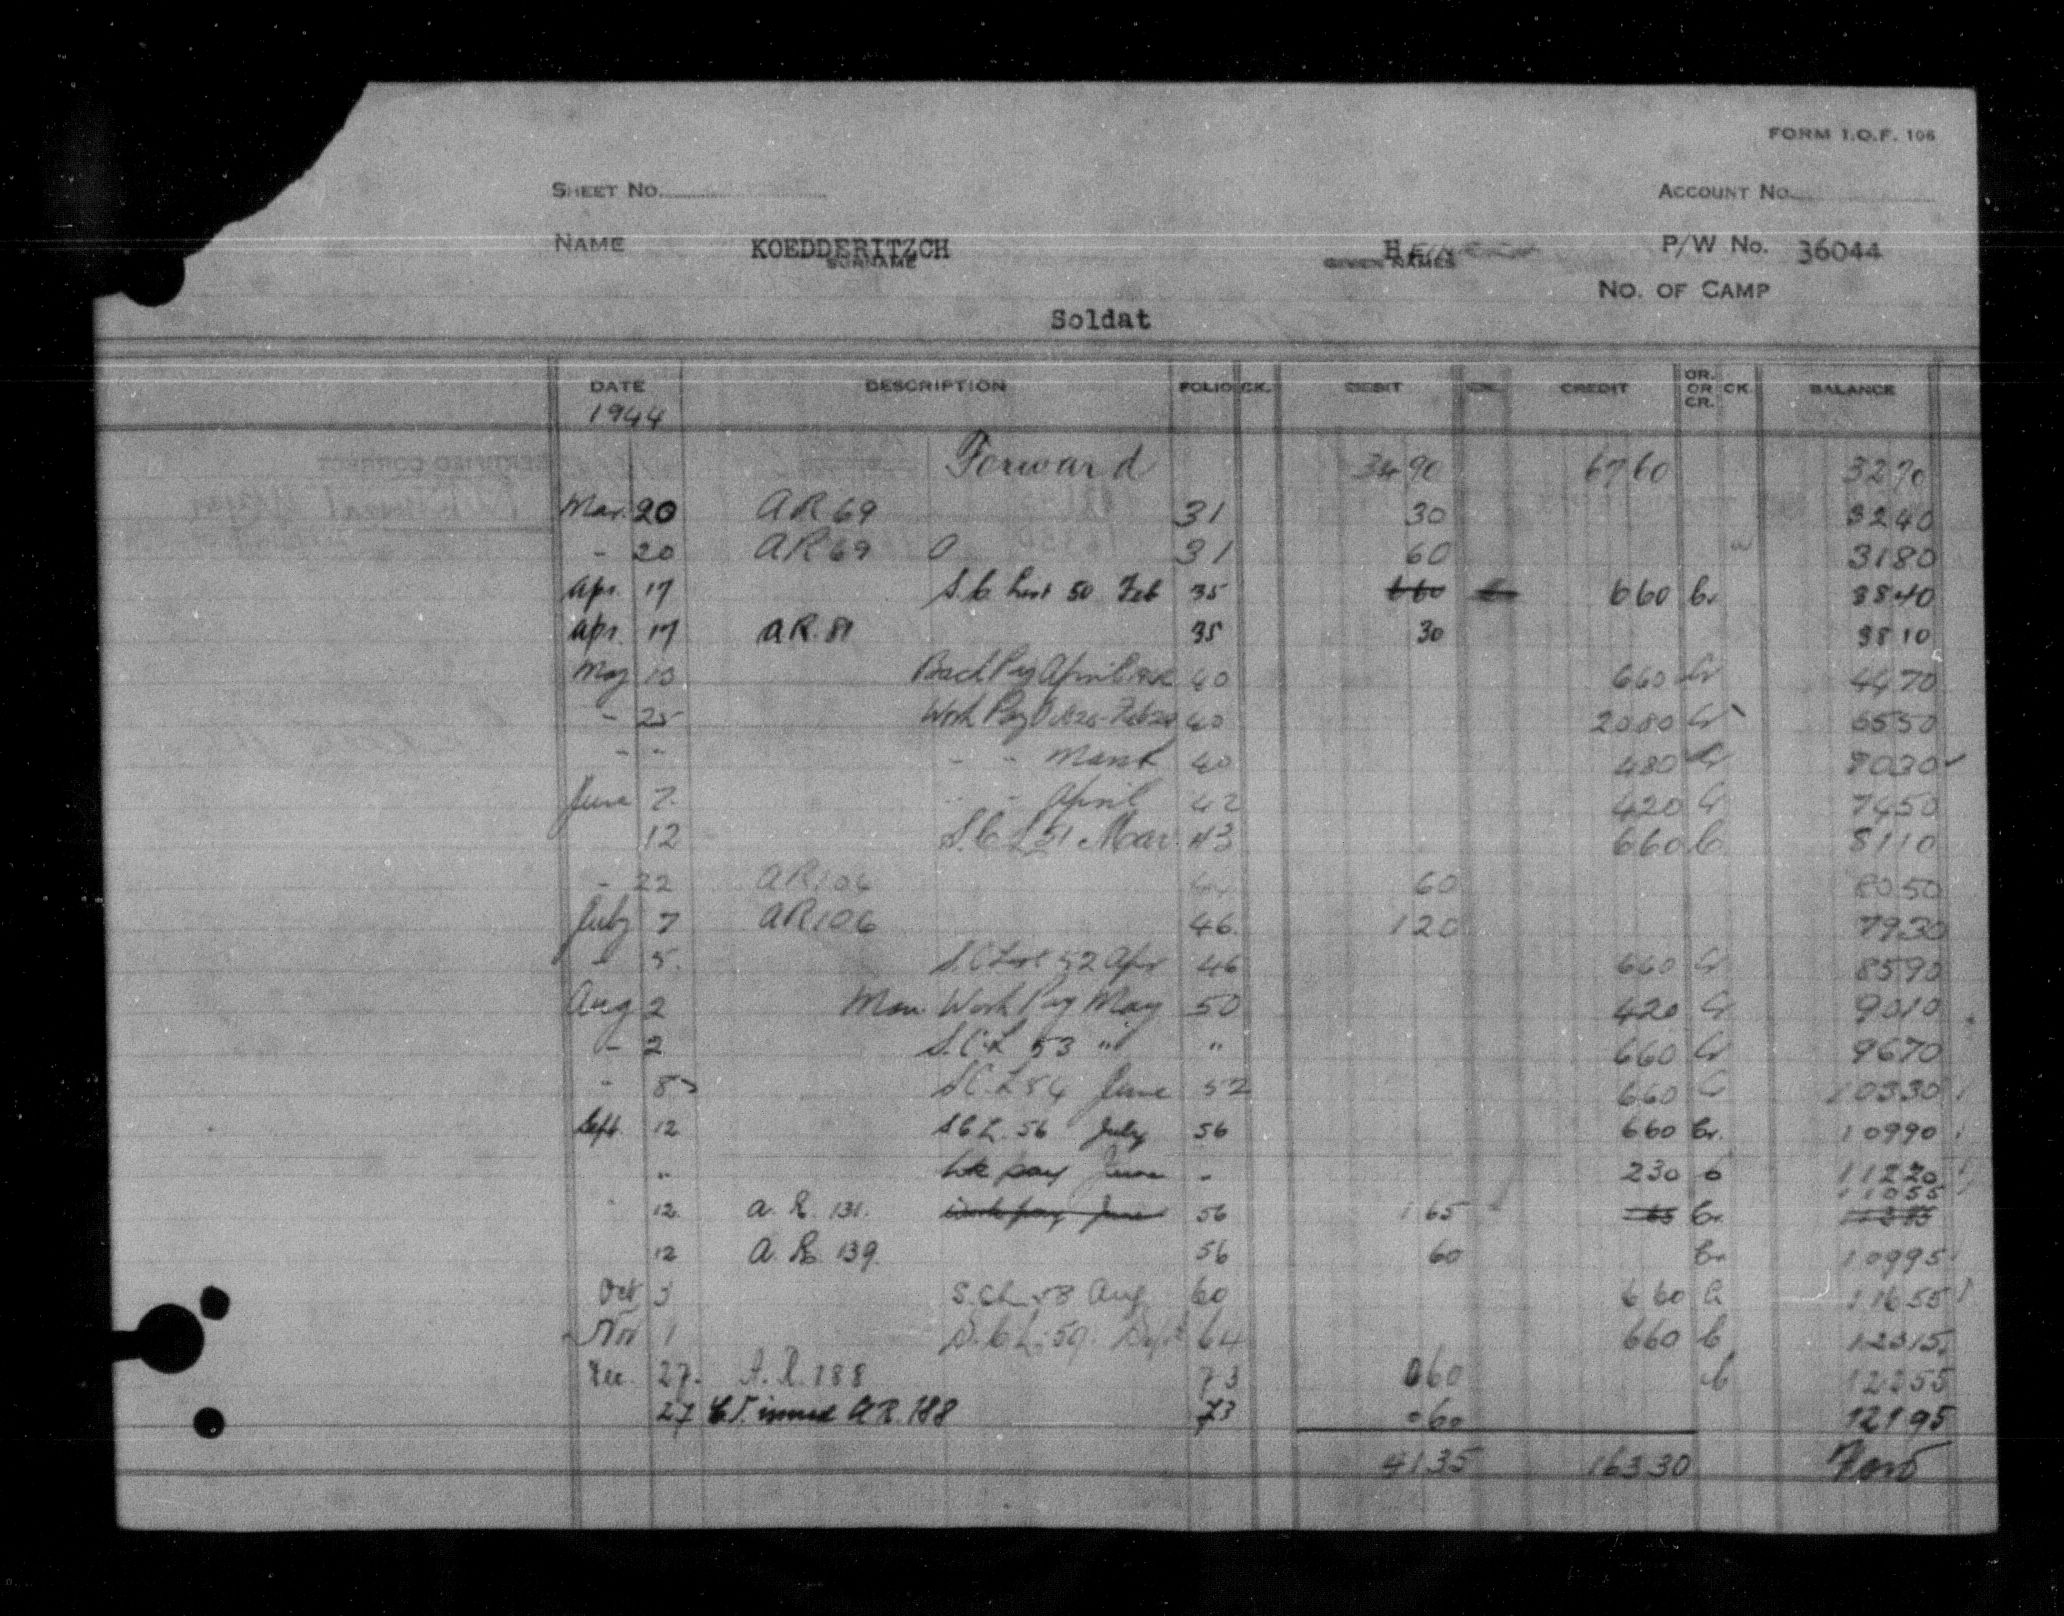 FORM I.O.F. 106
SHEET NO.
ACCOUNT NO.
NAME KOEDDERITZCH H P/W NO. 36044
SURNAME GIVEN NAMES
NO. OF CAMP
Soldat
DATE DESCRIPTION FOLIO CK. DEBIT CK. CREDIT DR. OR CR. CK. BALANCE
1944
Forward 34 90 67 60 32 70
Mar. 20 AR 69 31 30 32 40
- 20 AR 69 31 60 31 80
Apr. 17 S.C. List 50 Feb 35 6 60 6 60 Cr 38 40
Apr. 17 A.R. 81 35 30 38 10
May 10 Back Pay April 40 6 60 Cr 44 70
- 25 Work Pay Feb 20 40 20 80 Cr 65 50
- - - - March 40 4 80 Cr 70 30
June 7 - - April 42 4 20 Cr 74 50
12 S.C.L 51 Mar 43 6 60 Cr 81 10
- 22 AR 106 60 80 50
July 7 AR 106 46 1 20 79 30
- 5 S.C List 52 Apr 46 6 60 Cr 85 90
Aug 2 Mon. Work Pay May 50 4 20 Cr 90 10
- 2 S.C.L 53 " " 6 60 Cr 96 70
- 8 S.C.L 54 June 52 6 60 Cr 103 30
Sept. 12 S.C.L. 56 July 56 6 60 Cr. 109 90
" Wk pay June - 2 30 112 20
110 55
" 12 A.R. 131. Work pay June 56 1 65 Cr.
12 A.R. 139. 56 60 Cr. 109 95
Oct 3 S.C.L. 58 Aug 60 6 60 Cr 116 55
Nov 1 S.C.L. 59. Sept 64 6 60 Cr 123 15
Dec. 27. A.R. 188 73 0 60 Cr 122 55
27 issued A.R. 188 73 0 60 121 95
41 35 163 30 Ford